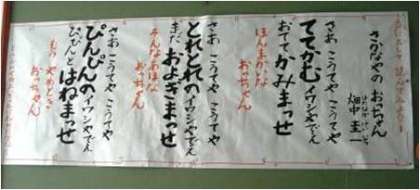 さかなやの おっちゃん
畑中 圭一
さあ こうてや こうてや
ててかむ イワシやでえ
おてて かみまっせ
ほんまかいな
おっちゃん
さあ こうてや こうてや
とれとれの イワシやでえ
まだ およぎまっせ
そんなあほな
おっちゃん
さあ こうてや こうてや
ぴんぴんの イワシやでえ
ぴぴんと はねまっせ
もう やめときい
おっちゃん